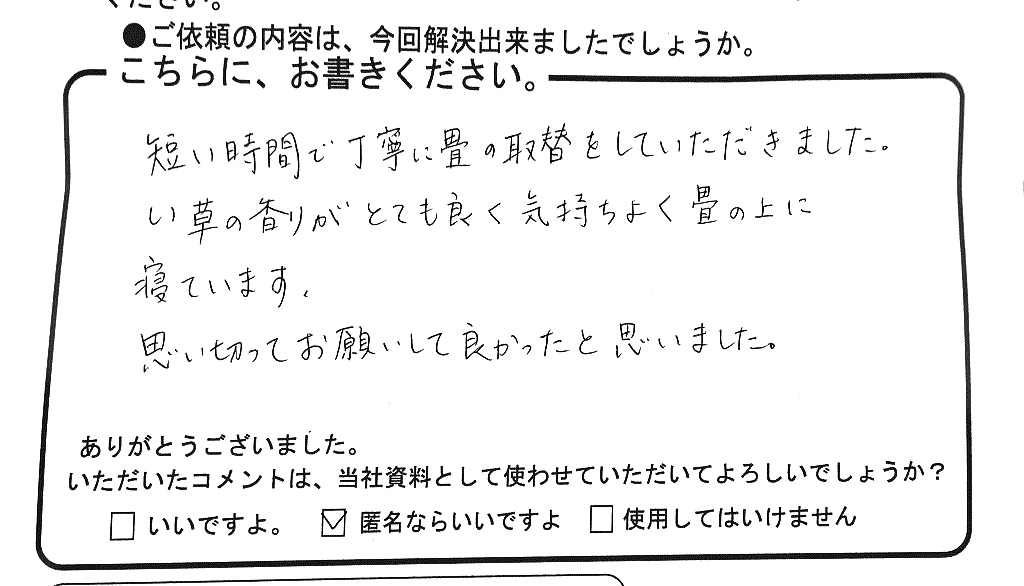 ください。
●ご依頼の内容は、今回解決出来ましたでしょうか。
こちらに、お書きください。
短い時間で丁寧に畳の取替をしていただきました。
い草の香りがとても良く気持ちよく畳の上に
寝ています。
思い切ってお願いして良かったと思いました。
ありがとうございました。
いただいたコメントは、当社資料として使わせていただいてよろしいでしょうか？
□ いいですよ。 ☑ 匿名ならいいですよ □ 使用してはいけません